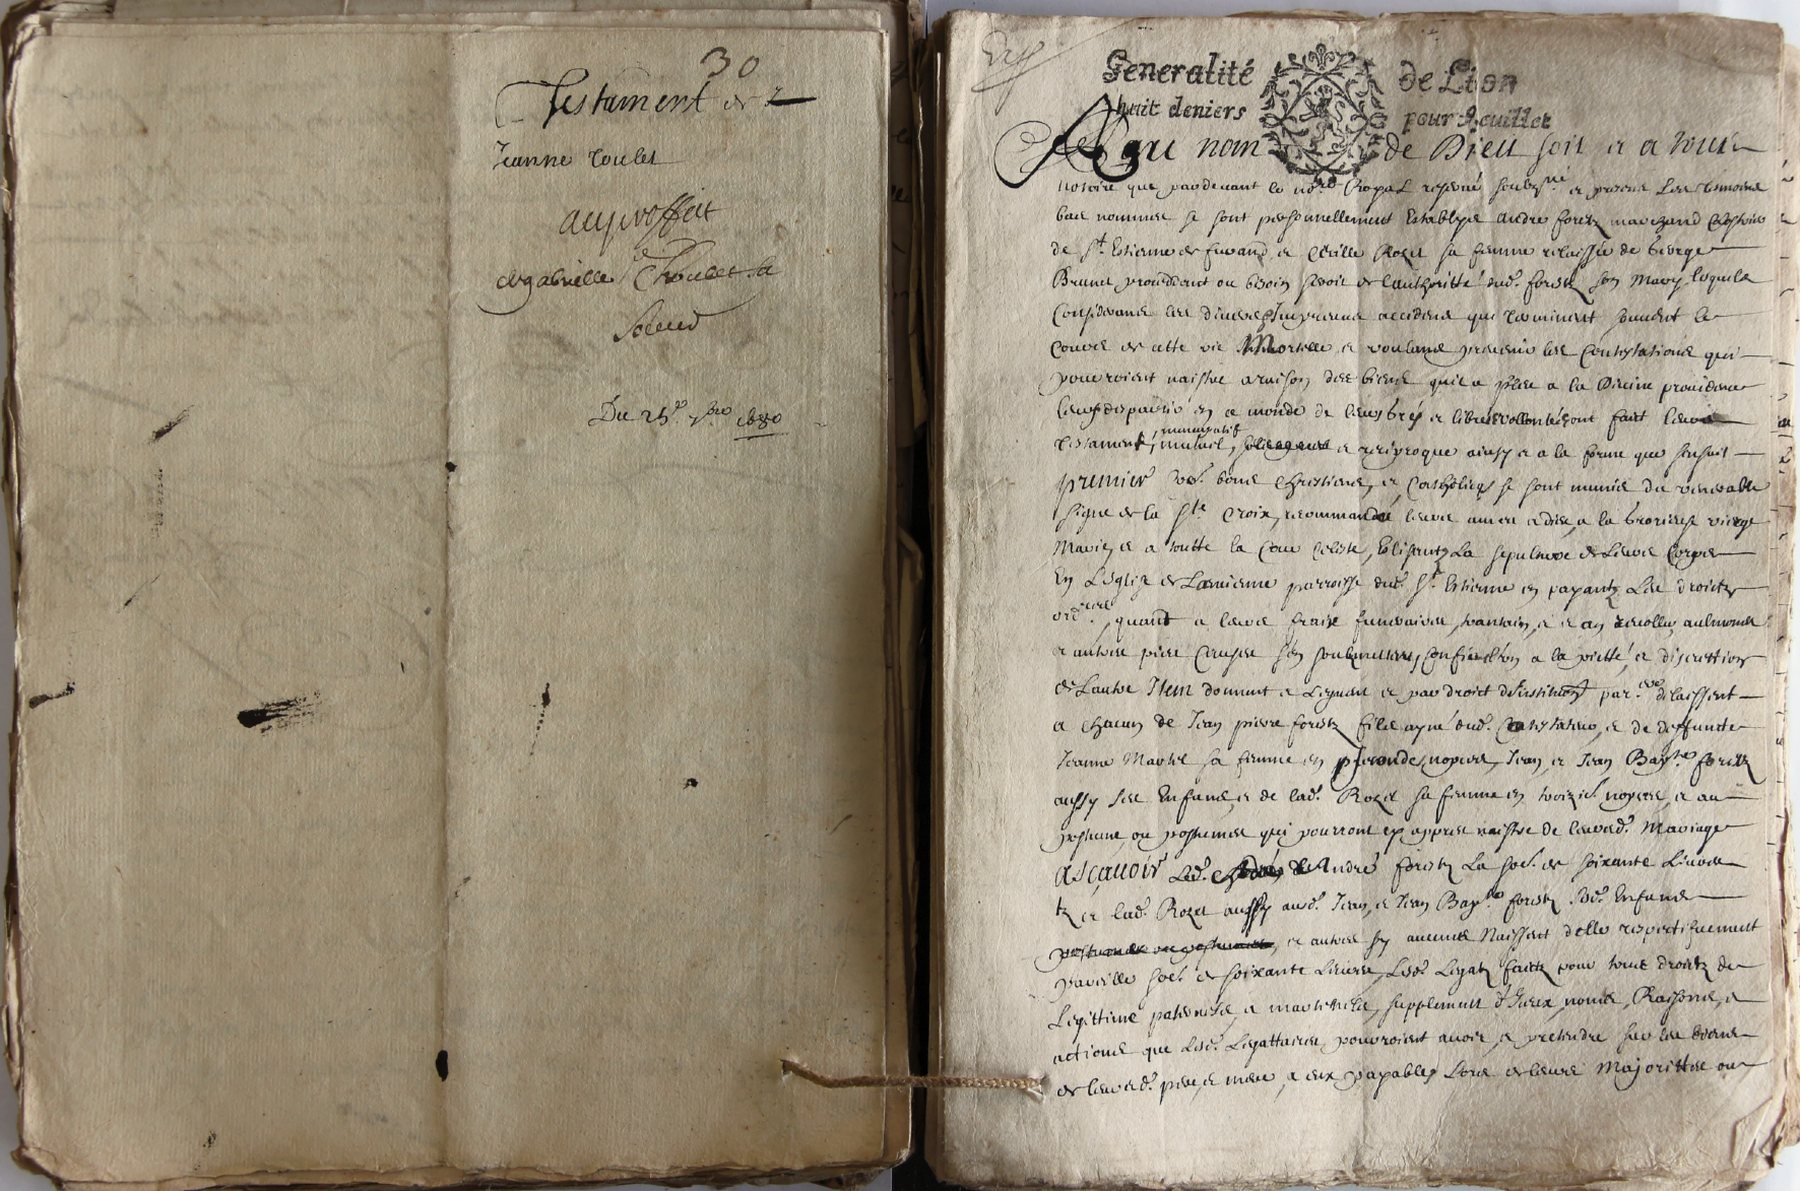 30
Testament de
Jeanne Toulet
au proffit
de gabrielle Thoulet sa
soeur
Du 25e 7bre 1680
Generalité de Lion
huit deniers pour feuillet
Au nom de Dieu soit et a tous
notoire que pardevant le nore Royal reservé soubzné et presens Les tesmoins
bas nommes se sont personnellement Establys andré forest marchand
de St Estienne de furand et Sibille Rozet sa femme relaissée de George
Brunet procedant ou besoin seroit de l'authoritté dud. forest son Mary lesquels
Considerans les divers Impreveus accidens qui terminent souvent le
Cours de cette vie Mortelle et voulans prevenir les Contestations qui
pourroient naistre a raison des biens qu'il a pleu a la Divine providence
leurs despartir en ce monde de leurs grés et libres vollontés ont fait leur
nuncupatif
testament, mutuel, et reciproque ainsy et a la forme que sensuit
premier Comme bons Chrestiens, et Catholiqs se sont munis du venerable
signe de la Ste Croix, recommandé leurs ames a dieu, a la Glorieuse vierge
Marie, et a toutte la Cour Celeste, Eslisants La sepulture de Leurs Corps
En L'eglise de Lancienne parroisse dud. St Estienne en payants Les droicts
ordres, quant a leurs frais funeraires, quarantin, et et an revollu, aulmones
et autres pies Causes s'en soubmettent, confient l'un a la pietté, et discrettion
de Lautre Item donnent et Leguent et par droict d'institution par. delaissent
a chacun de Jean pierre forest fils ayné dud. testateur, et de deffuncte
Jeanne Martel sa femme en secondes nopces, Jean, et Jean Bapte forest
aussy ses Enfans, et de lad. Rozet sa femme en troize. nopces, et au
postume, ou postumes qui pourront cy appres naistre de leurd. Mariage
asçavoir Led. André forest La some. de soixante Livres
et lad. Rozet aussy ausd. Jean, et Jean Bapte forest sesd. Enfans
et autres sy aucuns Naissent d'elle respectifvement
pareille some. de soixante Livres, Lesd. Legats faits pour tous droicts de
Legittime paternelle, et maternelle, supplement d'Iceux, noms, Raisons, et
actions que Lesd. Legattaires pourroient avoir, et pretendre sur les biens
de leursd. pere, et mere, a eux payables Lors de leurs Majorittes ou